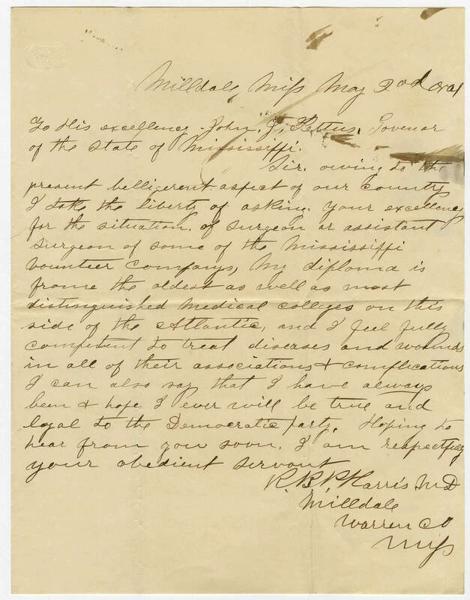 Milldale, Miss May 2nd 1861
To His excellency John. J. Pettus, Govenor
of the State of Mississippi.
Sir. owing to the
present bellicerent aspect of our country
I take the liberty of asking your excellency
for the situation of surgeon or assistant
surgeon of some of the Mississippi
volunteer companys, My diploma is
frome the oldest as well as most
distinguished Medical colleges on this
side of the Atlantic, and I feel fully
competent to treat diseases and wounds
in all of their associations & complications
I can also say that I have always
been & hope I ever will be true and
loyal to the Democratic party. Hoping to
hear from you soon. I am respectfully
your obedient servant
R. B. P. Harris M D
Milldale
Warren Co
Miss